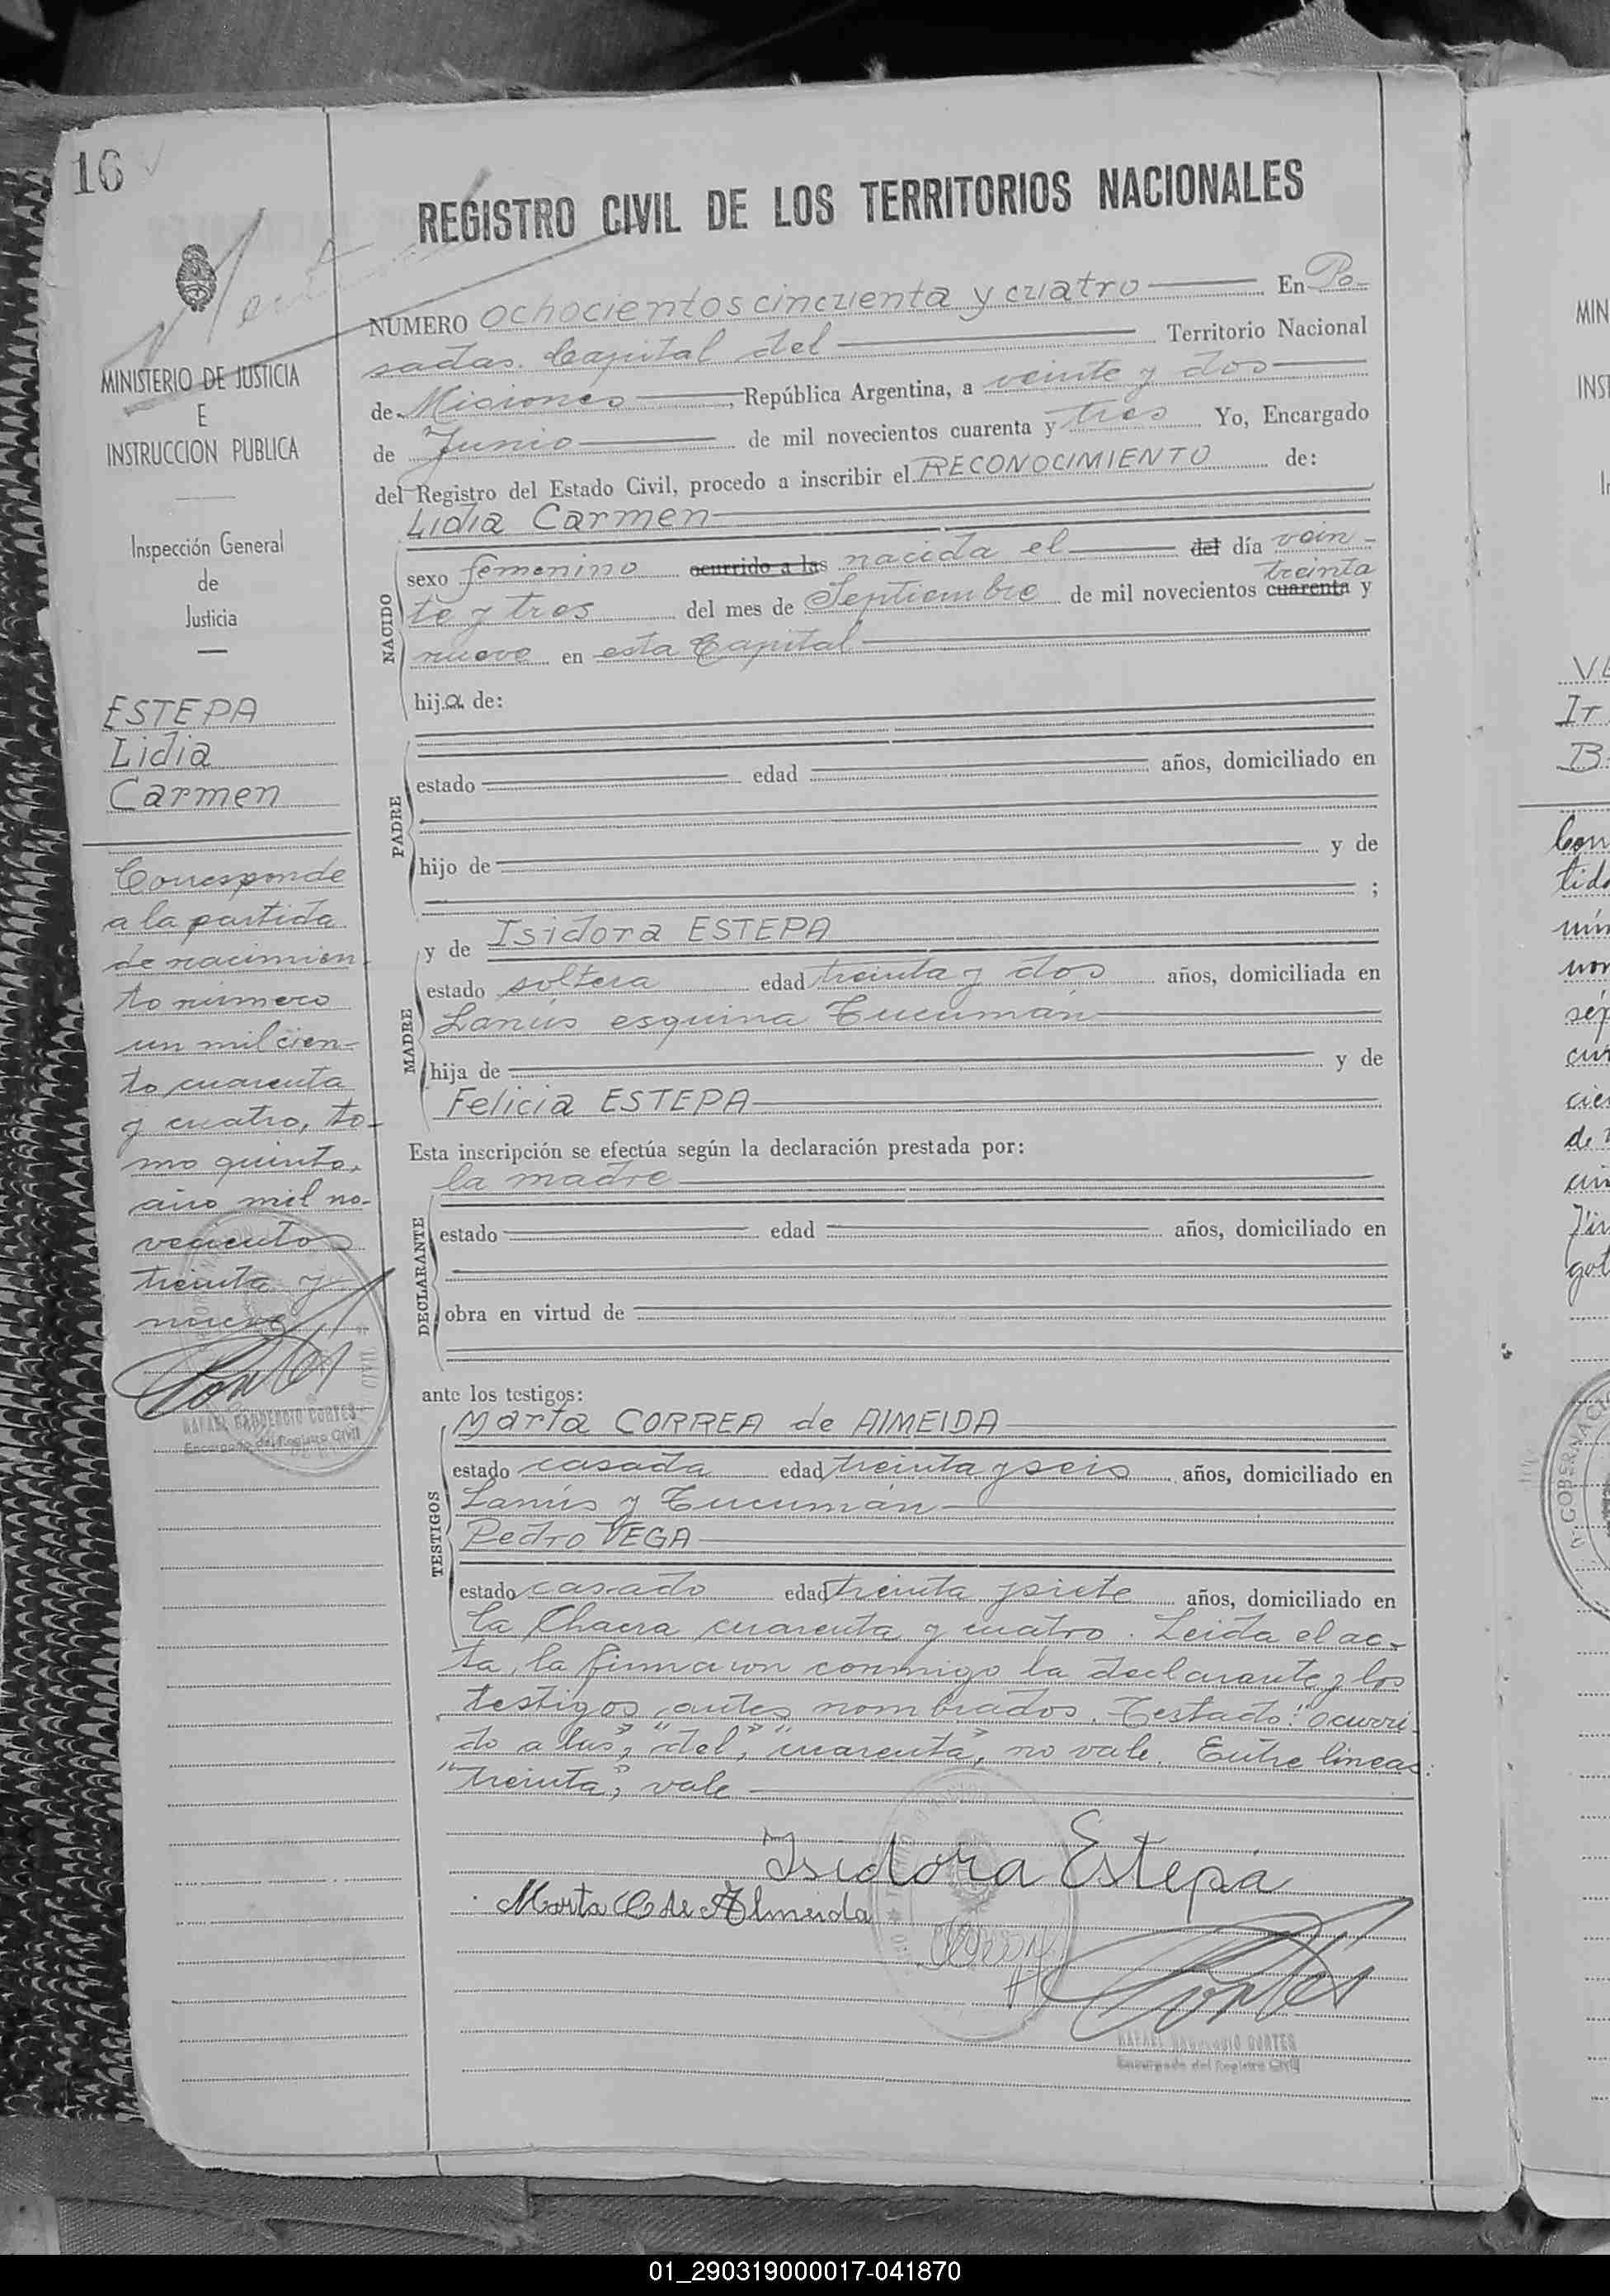 16
REGISTRO CIVIL DE LOS TERRITORIOS NACIONALES
MINISTERIO DE JUSTICIA
E
INSTRUCCION PUBLICA
Inspección General
de
Justicia
ESTEPA
Lidia
Carmen
Corresponde
a la partida
de nacimien
to número
un mil cien-
to cuarenta
y cuatro, to-
mo quinto,
año mil no-
vecientos
treinta y
nueve
RAFAEL GAUDENCIO CORTES
Encargado del Registro Civil
NUMERO ochocientos cincuenta y cuatro En Po-
sadas. Capital del Territorio Nacional
de Misiones, República Argentina, a veinte y dos
de Junio de mil novecientos cuarenta y tres Yo, Encargado
del Registro del Estado Civil, procedo a inscribir el RECONOCIMIENTO de:
NACIDO
Lidia Carmen
sexo femenino ocurrido a las nacida el del día vein-
treinta
te y tres del mes de Septiembre de mil novecientos cuarenta y
nueve en esta Capital
hija de:
PADRE
estado edad años, domiciliado en
hijo de y de
;
MADRE
y de Isidora ESTEPA
estado soltera edad treinta y dos años, domiciliada en
Lanús esquina Tucumán
hija de y de
Felicia ESTEPA
Esta inscripción se efectúa según la declaración prestada por:
DECLARANTE
la madre
estado edad años, domiciliado en
obra en virtud de
ante los testigos:
TESTIGOS
Marta CORREA de AlMEIDA
estado casada edad treinta y seis años, domiciliado en
Lanús y Tucumán
Pedro VEGA
estado casado edad treinta y siete años, domiciliado en
la Chacra cuarenta y cuatro. Leida el ac-
ta, la firmaron conmigo la declarante y los
testigos antes nombrados. Testado: "ocurri-
do a las", "del", "cuarenta", no vale. Entre lineas:
"treinta", vale
Isidora Estepa
Marta C de Almeida
Cortes
RAFAEL GAUDENCIO CORTES
Encargado del Registro Civil
MIN
INS
It
B.
Con
tida
núm
nov
sép
cua
cien
de
cin
GOBERNACI
01_290319000017-041870